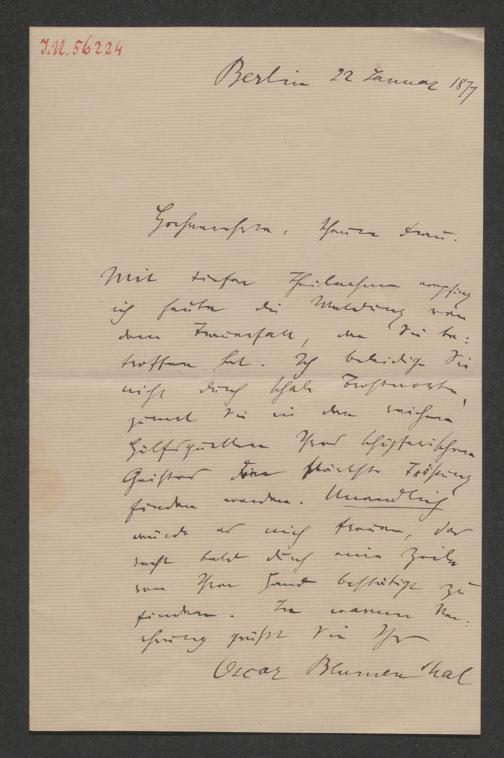 J.N. 56224
Berlin 22 Januar 1877
Hochverehrte, theure Frau.
Mit tiefer Theilnahme empfing
ich heute die Meldung von
dem Trauerfall, der Sie be=
troffen hat. Ich beleidige Sie
nicht durch schale Trostworte,
zumal Sie in den reichen
Hülfsquellen Ihres schöpferischen
Geistes den stärksten Tröstung
finden werden. Unendlich
würde es mich freuen, das
recht bald durch eine Zeile
von Ihrer Hand bestätigt zu
finden. In warmer Ver=
ehrung grüßt Sie Ihr
Oscar Blumenthal